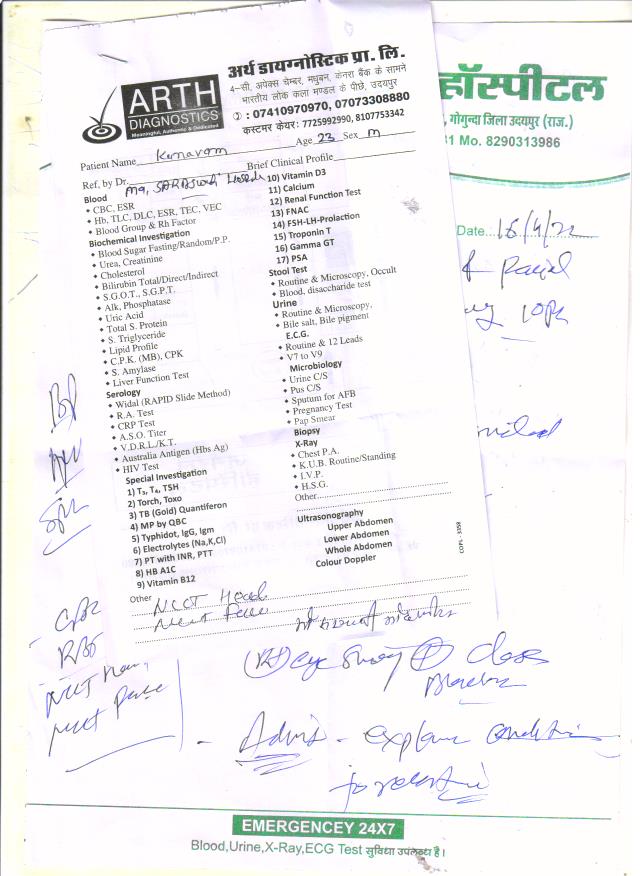 ARTH
DIAGNOSTICS
Meaningful, Authentic & Dedicated
अर्थ डायग्नोस्टिक प्रा. लि.
4-सी, अपेक्स चेम्बर, मधुबन, केनरा बैंक के सामने
भारतीय लोक कला मण्डल के पीछे, उदयपुर
: 07410970970, 07073308880
कस्टमर केयर: 7725992990, 8107753342
हॉस्पीटल
, गोगुन्दा जिला उदयपुर (राज.)
Mo. 8290313986
Patient Name Age 23 Sex M
Ref, by Dr. Brief Clinical Profile
Date
Blood
CBC, ESR
Hb, TLC, DLC, ESR, TEC, VEC
Blood Group & Rh Factor
Biochemical Investigation
Blood Sugar Fasting/Random/P.P.
Urea, Creatinine
Cholesterol
Bilirubin Total/Direct/Indirect
S.G.O.T., S.G.P.T.
Alk, Phosphatase
Uric Acid
Total S. Protein
S. Triglyceride
Lipid Profile
C.P.K. (MB), CPK
S. Amylase
Liver Function Test
Serology
Widal (RAPID Slide Method)
R.A. Test
CRP Test
A.S.O. Titer
V.D.R.L./K.T.
Australia Antigen (Hbs Ag)
HIV Test
Special Investigation
1) T₃, T₄, TSH
2) Torch, Toxo
3) TB (Gold) Quantiferon
4) MP by QBC
5) Typhidot, IgG, Igm
6) Electrolytes (Na,K,Cl)
7) PT with INR, PTT
8) HB A1C
9) Vitamin B12
10) Vitamin D3
11) Calcium
12) Renal Function Test
13) FNAC
14) FSH-LH-Prolaction
15) Troponin T
16) Gamma GT
17) PSA
Stool Test
Routine & Microscopy, Occult
Blood, disaccharide test
Urine
Routine & Microscopy,
Bile salt, Bile pigment
E.C.G.
Routine & 12 Leads
V7 to V9
Microbiology
Urine C/S
Pus C/S
Sputum for AFB
Pregnancy Test
Pap Smear
Biopsy
X-Ray
Chest P.A.
K.U.B. Routine/Standing
I.V.P.
H.S.G.
Other
Ultrasonography
Upper Abdomen
Lower Abdomen
Whole Abdomen
Colour Doppler
COPL - 3358
Other NCCT Head
NCCT Face
CBC
RBS
NCCT Face
Advis - explain condition
to relative
EMERGENCEY 24X7
Blood,Urine,X-Ray,ECG Test सुविधा उपलब्ध है।